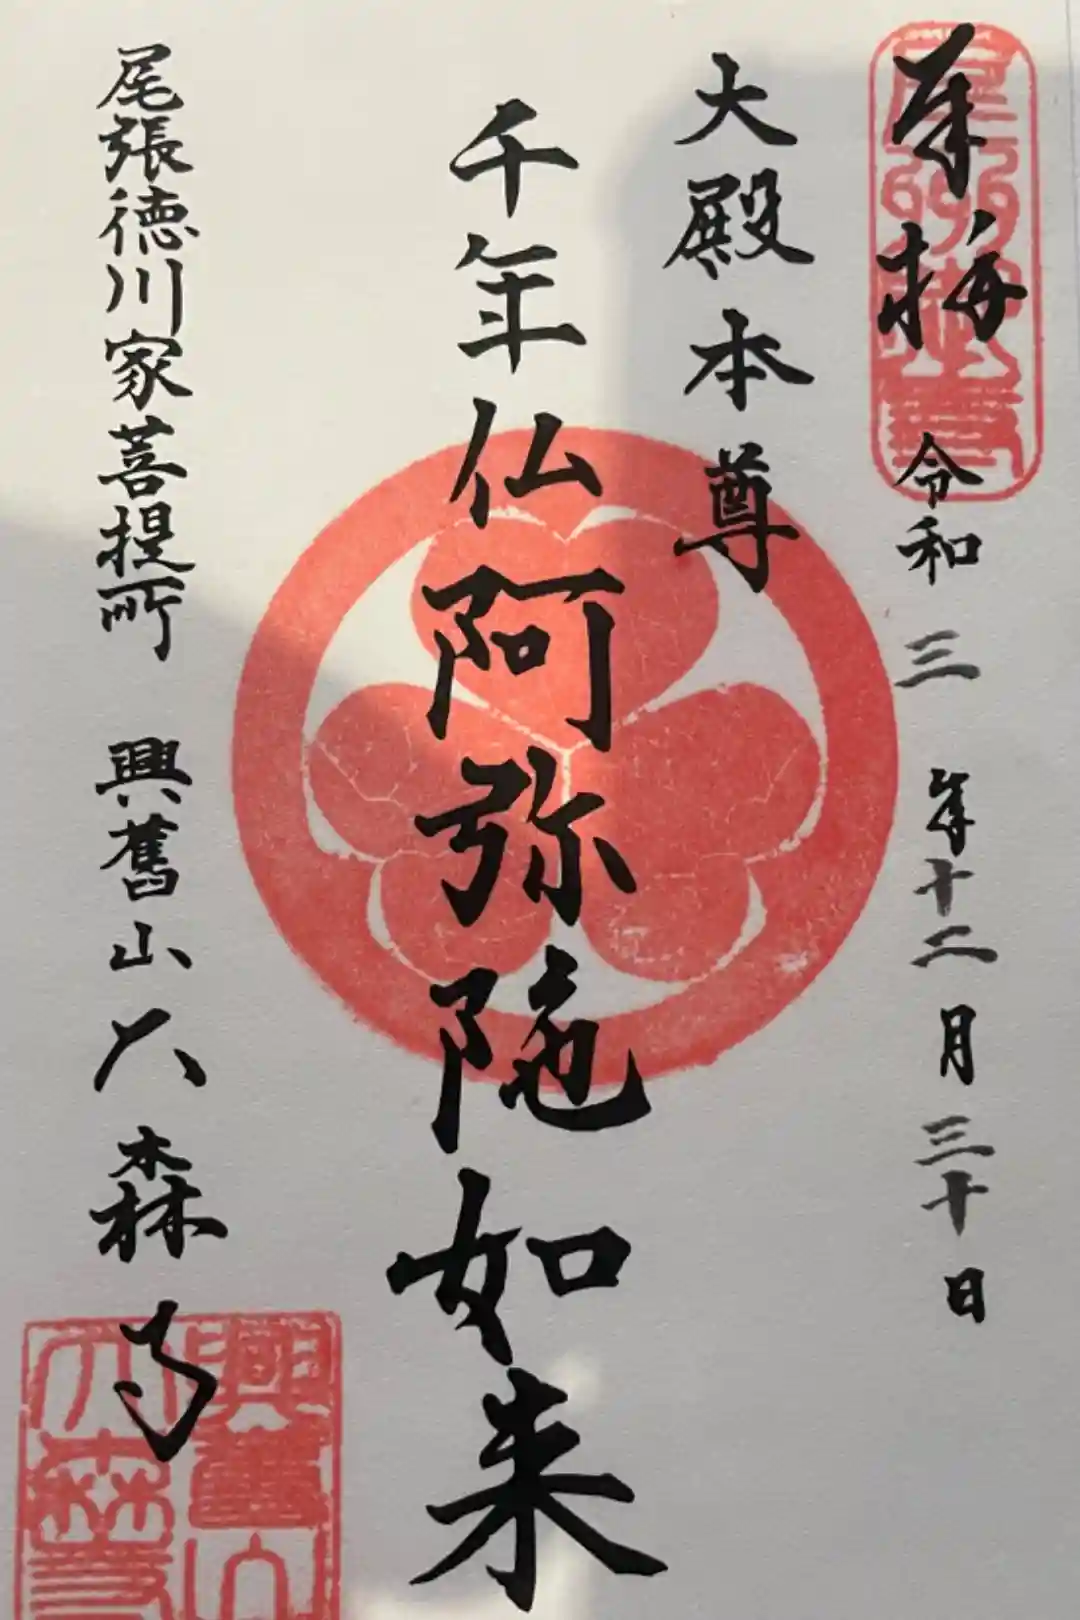 奉拝 令和三年十二月三十日
大殿本尊
千年仏阿弥陀如来
尾張徳川家菩提所 興舊山大森寺
興舊山
大森寺